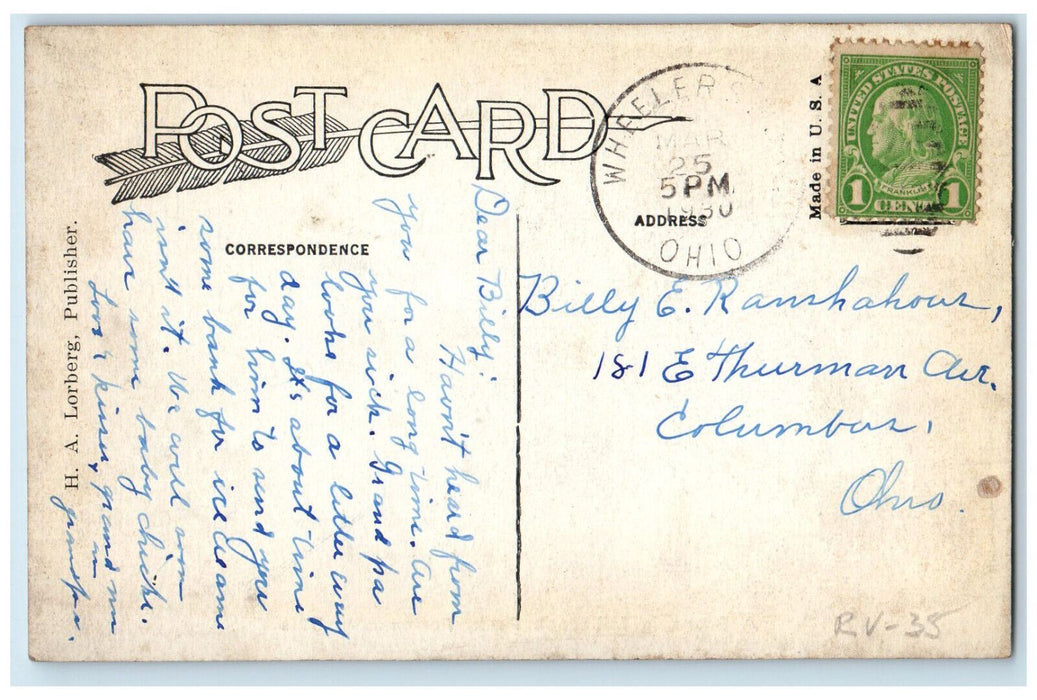 POST CARD
CORRESPONDENCE
ADDRESS
Made in U. S. A
H. A. Lorberg, Publisher.
WHEELER
MAR
25
5 PM
1930
OHIO
UNITED STATES POSTAGE
FRANKLIN
1 CENT 1
Dear Billy:
Havn't heard from
you for a long time. Are
you sick. Grand pa
looks for a letter every
day. It's about time
for him to send you
some bank for ice cream
isn't it. We will soon
have some baby chicks.
Love & kisses, grand ma
n
grandpa.
Billy E. Ramshahous,
181 E Thurman Av.
Columbus,
Ohio.
RV-35